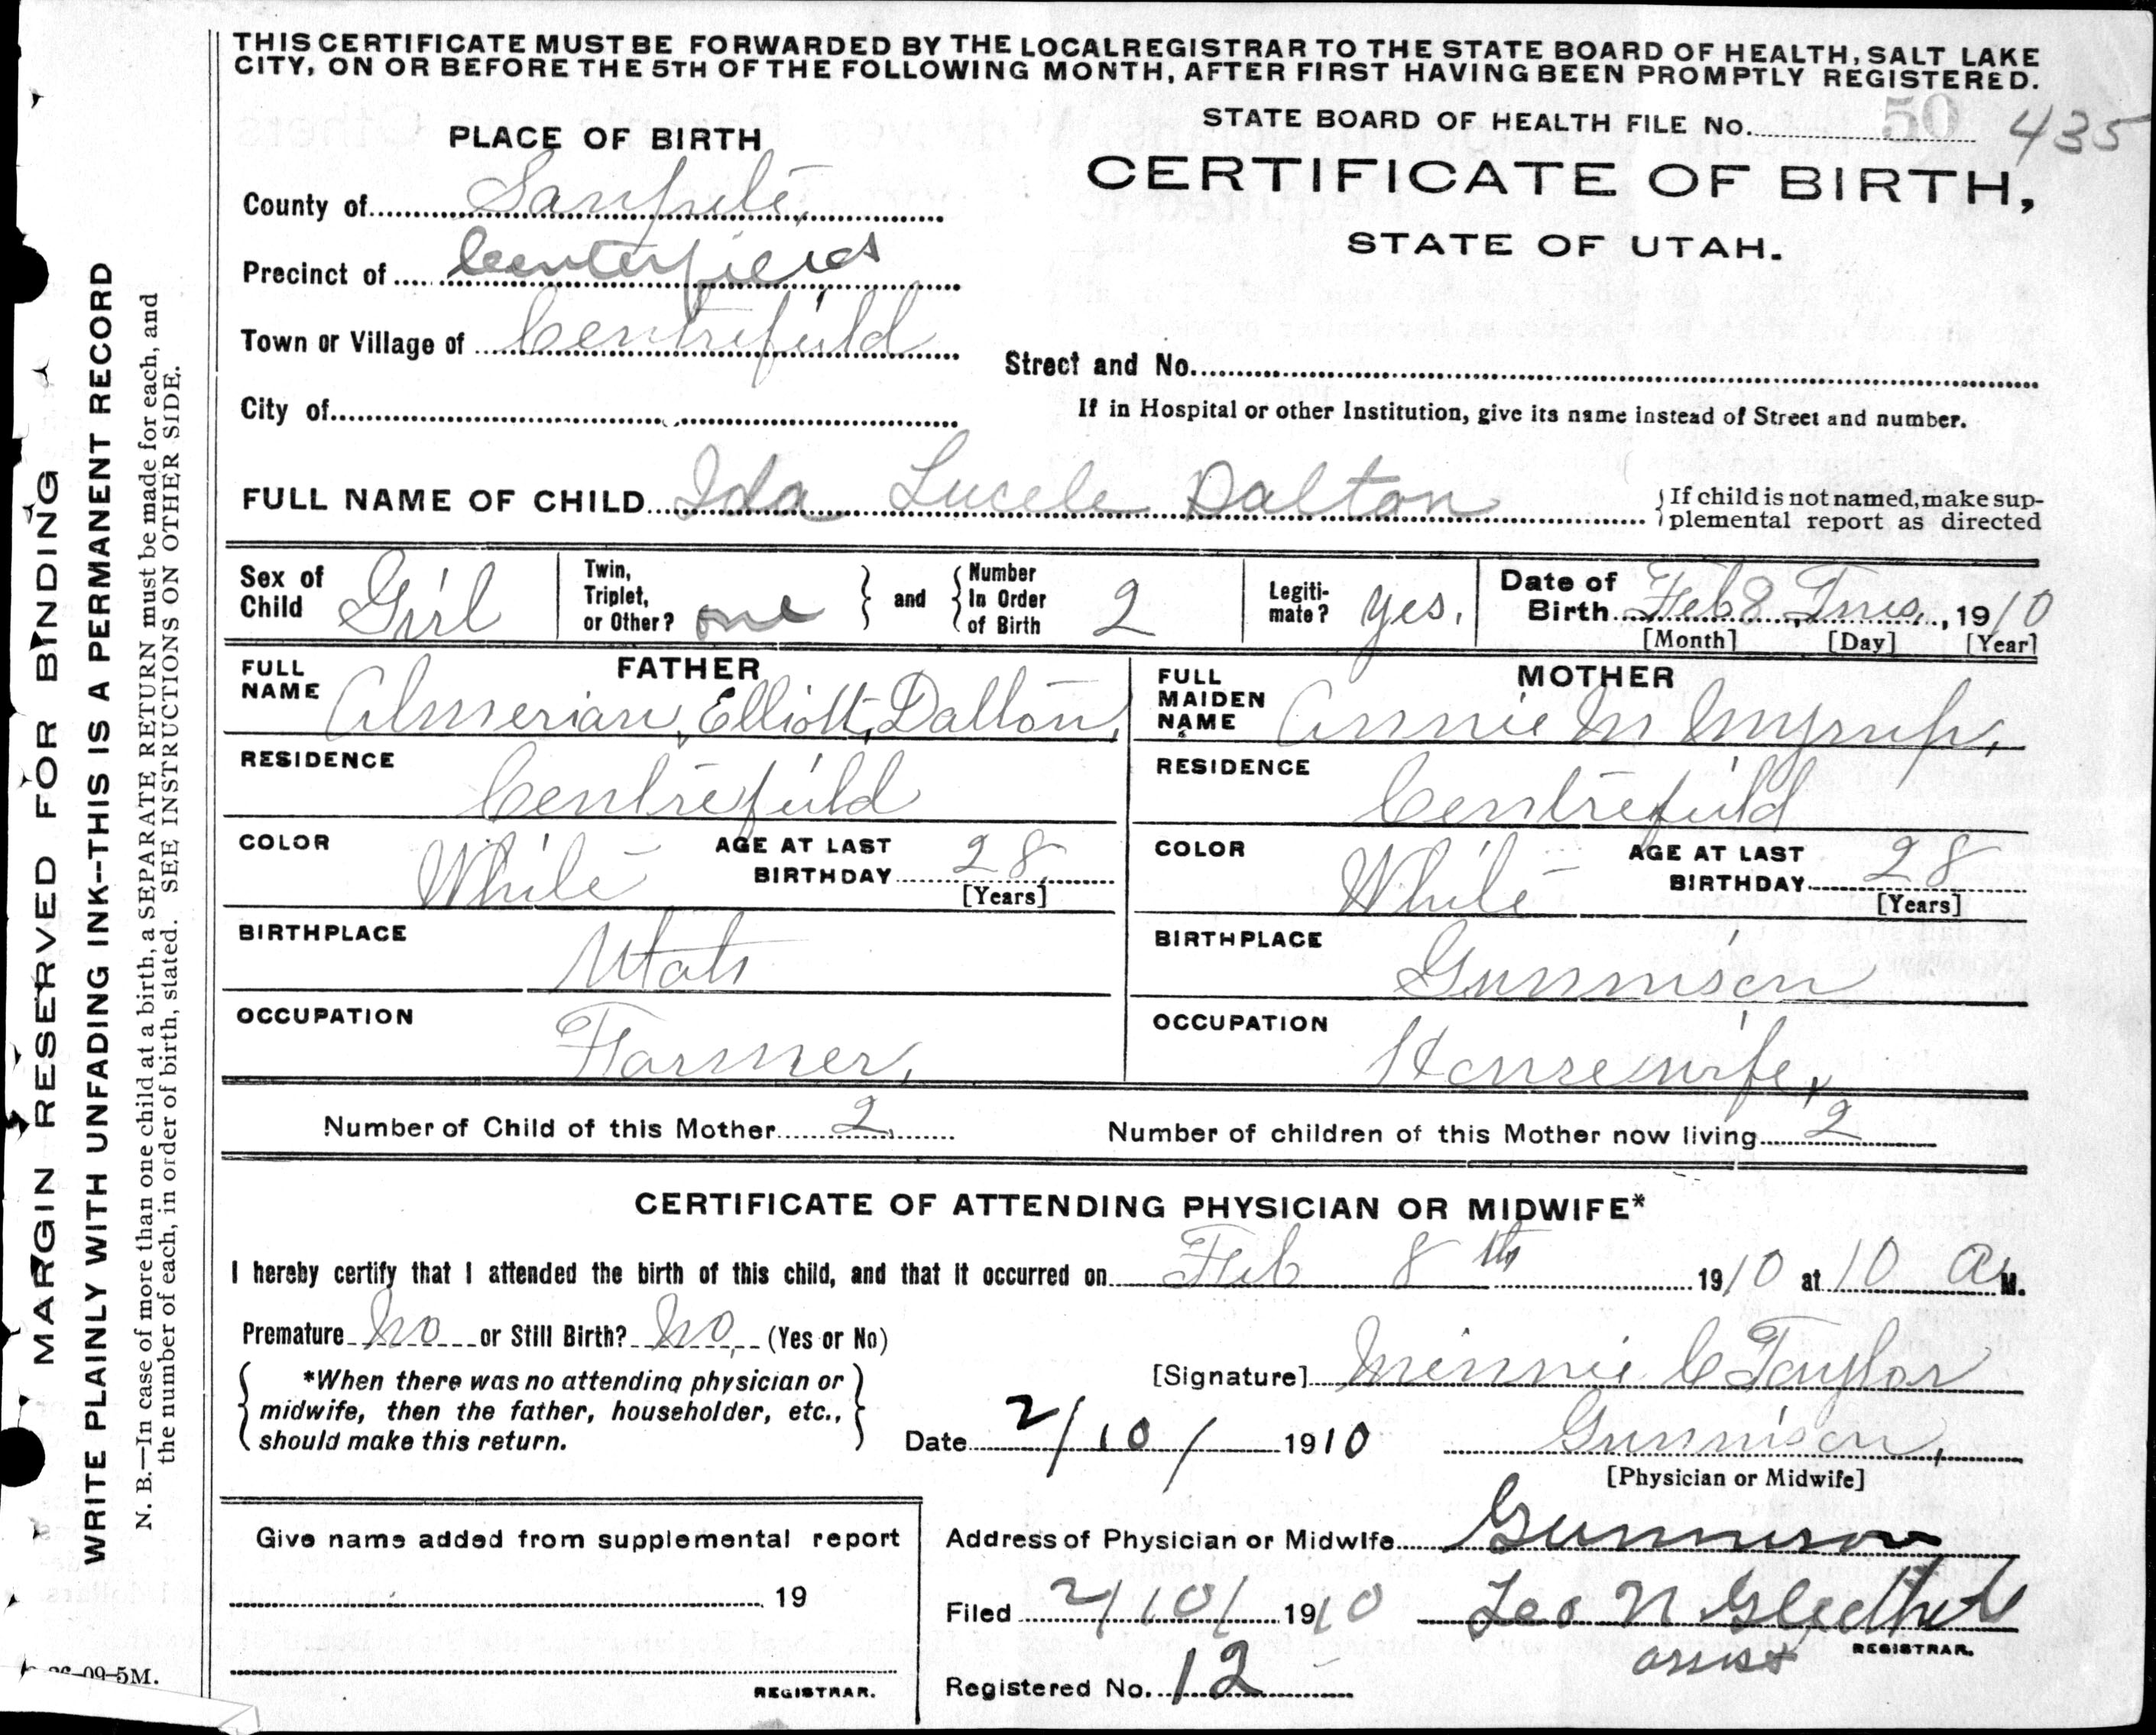 THIS CERTIFICATE MUST BE FORWARDED BY THE LOCAL REGISTRAR TO THE STATE BOARD OF HEALTH, SALT LAKE
CITY, ON OR BEFORE THE 5TH OF THE FOLLOWING MONTH, AFTER FIRST HAVING BEEN PROMPTLY REGISTERED.
STATE BOARD OF HEALTH FILE No. 50 435
PLACE OF BIRTH
CERTIFICATE OF BIRTH,
STATE OF UTAH.
County of Sanpete,
Precinct of Centerfield
Town or Village of Centrefield
Street and No.
City of
If in Hospital or other Institution, give its name instead of Street and number.
FULL NAME OF CHILD Ida Lucele Dalton
{ If child is not named, make sup-
plemental report as directed
Sex of Child Girl
Twin, Triplet, or Other? one } and { Number In Order of Birth 2
Legiti-mate? yes.
Date of Birth Feb 8, Tues, 1910
[Month] [Day] [Year]
FATHER
FULL NAME Almerian, Elliott, Dalton,
MOTHER
FULL MAIDEN NAME Annie M
RESIDENCE Centrefield
RESIDENCE Centrefield
COLOR White AGE AT LAST BIRTHDAY 28 [Years]
COLOR White AGE AT LAST BIRTHDAY 28 [Years]
BIRTHPLACE Utah
BIRTHPLACE Gunnison
OCCUPATION Farmer,
OCCUPATION Housewife,
Number of Child of this Mother 2
Number of children of this Mother now living 2
CERTIFICATE OF ATTENDING PHYSICIAN OR MIDWIFE*
I hereby certify that I attended the birth of this child, and that it occurred on Feb 8th 1910 at 10 A M.
Premature No or Still Birth? No, (Yes or No)
{ *When there was no attending physician or
midwife, then the father, householder, etc.,
should make this return. }
[Signature] Minnie C Taylor
Date 2/10/ 1910
Gunnison,
[Physician or Midwife]
Give name added from supplemental report
19
REGISTRAR.
Address of Physician or Midwife Gunnison
Filed 2/10/ 1910 Leo N Gledhill
assist REGISTRAR.
Registered No. 12
MARGIN RESERVED FOR BINDING
WRITE PLAINLY WITH UNFADING INK--THIS IS A PERMANENT RECORD
N. B.—In case of more than one child at a birth, a SEPARATE RETURN must be made for each, and
the number of each, in order of birth, stated. SEE INSTRUCTIONS ON OTHER SIDE.
09-5M.